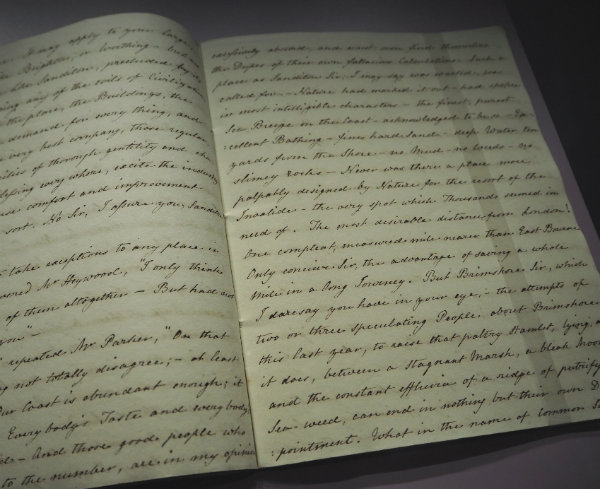 it may apply to your large,
Brighton, or Worthing - but
like Sanditon, precluded by
any of the evils of Civilization
the place, the Buildings, the
demand for every thing, and
very best company, those regular
of thorough gentility and cha
wherever, excite the industry
comfort and improvement
sort. No Sir, I assure you, Sanditon
take exceptions to any place in
Mr Heywood, "I only think
of them altogether - But had not
you"
repeated Mr Parker, "On that
not totally disagree; - at least
our Coast is abundant enough; it
Everybody's Taste and everybody
And those good people who
to the number, are in my opinion
excessively absurd, and must soon find themselves
the Dupes of their own fallacious Calculations. Such a
place as Sanditon Sir, I may say was wanted, was
called for. - Nature had marked it out - had spoken
in most intelligible characters - the finest, purest
Sea Breeze on the Coast - acknowledged to be so - Ex
cellent Bathing - fine hard Sand - deep Water ten
yards from the Shore - no Mud - no Weeds - no
slimey rocks - Never was there a place more
palpably designed by Nature for the resort of the
Invalide - the very spot which Thousands seemed in
need of. The most desirable distance from London!
One compleat, measured mile nearer than East Bourne
Only conceive Sir, the advantage of saving a whole
Mile in a long Journey. But Brinshore Sir, which
I dare say you have in your eye, - the attempts of
two or three speculating People about Brinshore
this last year, to raise that paltry Hamlet, lying, as
it does, between a Stagnant Marsh, a bleak Moor
and the constant effluvia of a ridge of putrify
Sea-weed, can end in nothing but their own Di
:pointment. What in the name of Common Se